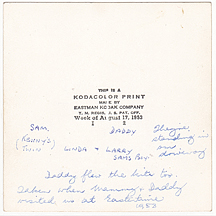 THIS IS A
KODACOLOR PRINT
MADE BY
EASTMAN KODAK COMPANY
T. M. REGIS. U. S. PAT. OFF.
Week of August 17, 1953
1 2
SAM. DADDY They're
(KENNY'S standing in
TWIN) LINDA & LARRY our
SAM'S Boy. doorway
Daddy flew the kite too.
Taken when Mammy & Daddy
visited us at Eastertime
1953